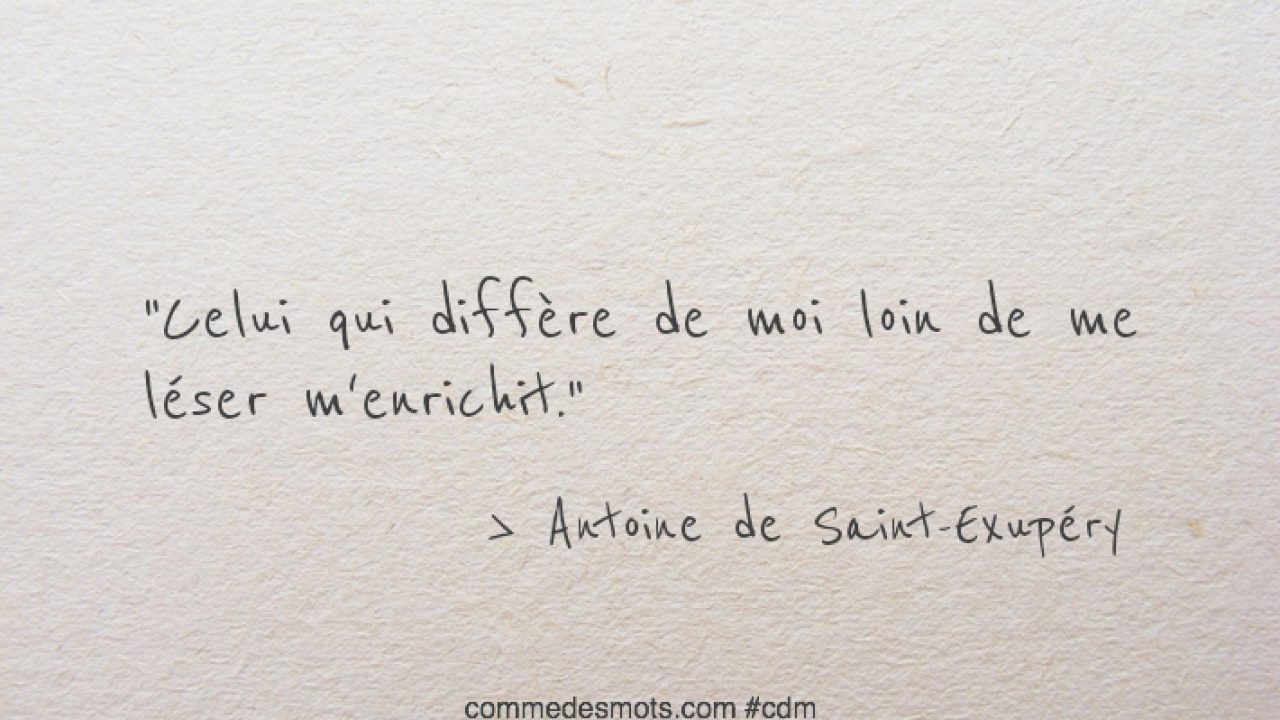 "Celui qui diffère de moi loin de me
léser m'enrichit."
> Antoine de Saint-Exupéry
commedesmots.com #cdm